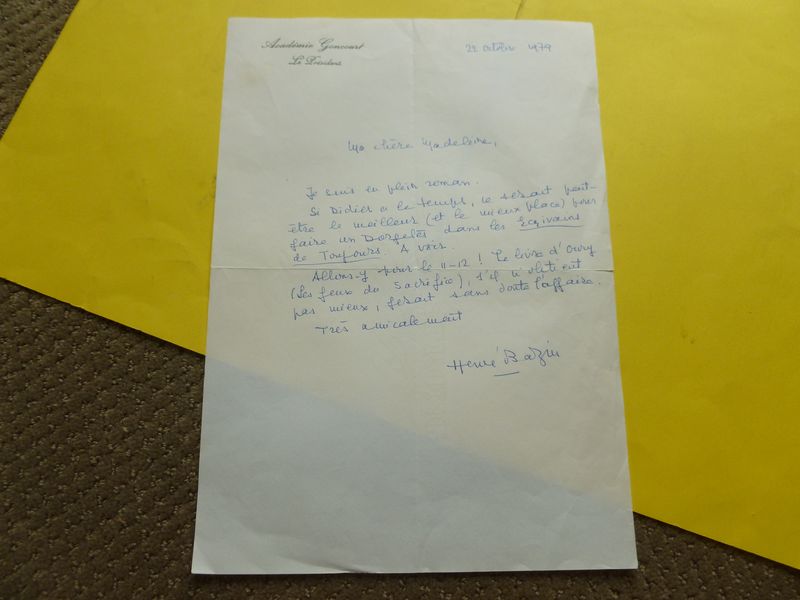 Académie Goncourt
Le Président
22 octobre 1979
Ma chère Madeleine,
Je suis en plein roman.
Si Didier a le temps, ce serait peut-
être le meilleur (et le mieux placé) pour
faire un Dorgelès dans les Écrivains
de Toujours. A voir.
Allons-y pour le 11-12 ! Le livre d'
(Les feux du Sacrifice), s'il n'obtient
pas mieux, ferait sans doute l'affaire.
Très amicalement
Hervé Bazin